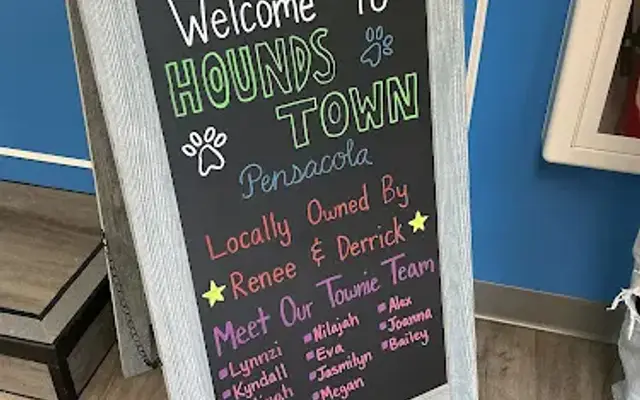 Welcome To
HOUNDS
TOWN
Pensacola
Locally Owned By
Renee & Derrick
Meet Our Townie Team
Lynnzi
Kyndall
Nilajah
Eva
Jasmilyn
Megan
Alex
Joanna
Bailey